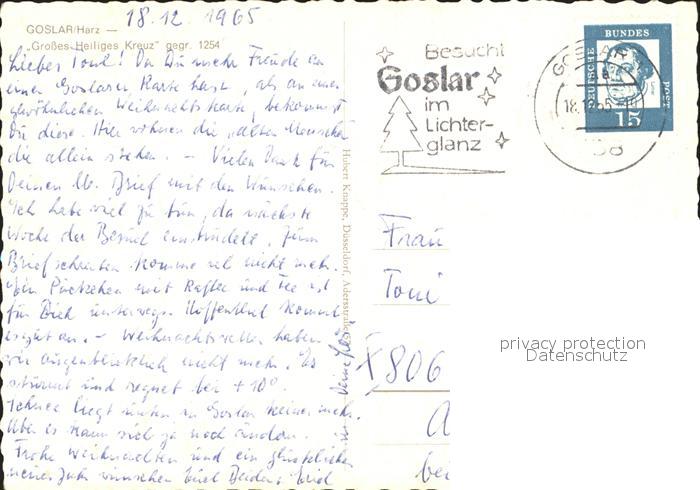 18.12.1965
GOSLAR/Harz —
„Großes Heiliges Kreuz“ gegr. 1254
Liebes Toni! Da Du mehr Freude an
einer Goslarer Karte hast, als an einer
gewöhnlichen Weihnachtskarte, bekommst
Du diese. Hier wohnen die alten Menschen
die allein stehen. — Vielen Dank für
Deinen lb. Brief mit den Wünschen.
Ich habe viel zu tun, da nächste
Woche der Besuch eintrudelt. Zum
Briefschreiben komme ich nicht mehr.
Ein Päckchen mit Kaffee und Tee ist
für Dich unterwegs. Hoffentlich kommt
es gut an. — Weihnachtswetter haben
wir augenblicklich nicht mehr. Es
stürmt und regnet bei +10°.
Schnee liegt unten in Goslar keiner mehr.
Aber es kann sich ja noch ändern.
Frohe Weihnachten und ein glückliches
neues Jahr wünschen Euch Beiden
Hubert Knappe, Düsseldorf, Adersstraße
Besucht
Goslar
im
Lichter-
glanz
GOSLAR
18.12.65
DEUTSCHE
BUNDES
POST
15
Frau
Toni
X 806
A
bei
privacy protection
Datenschutz